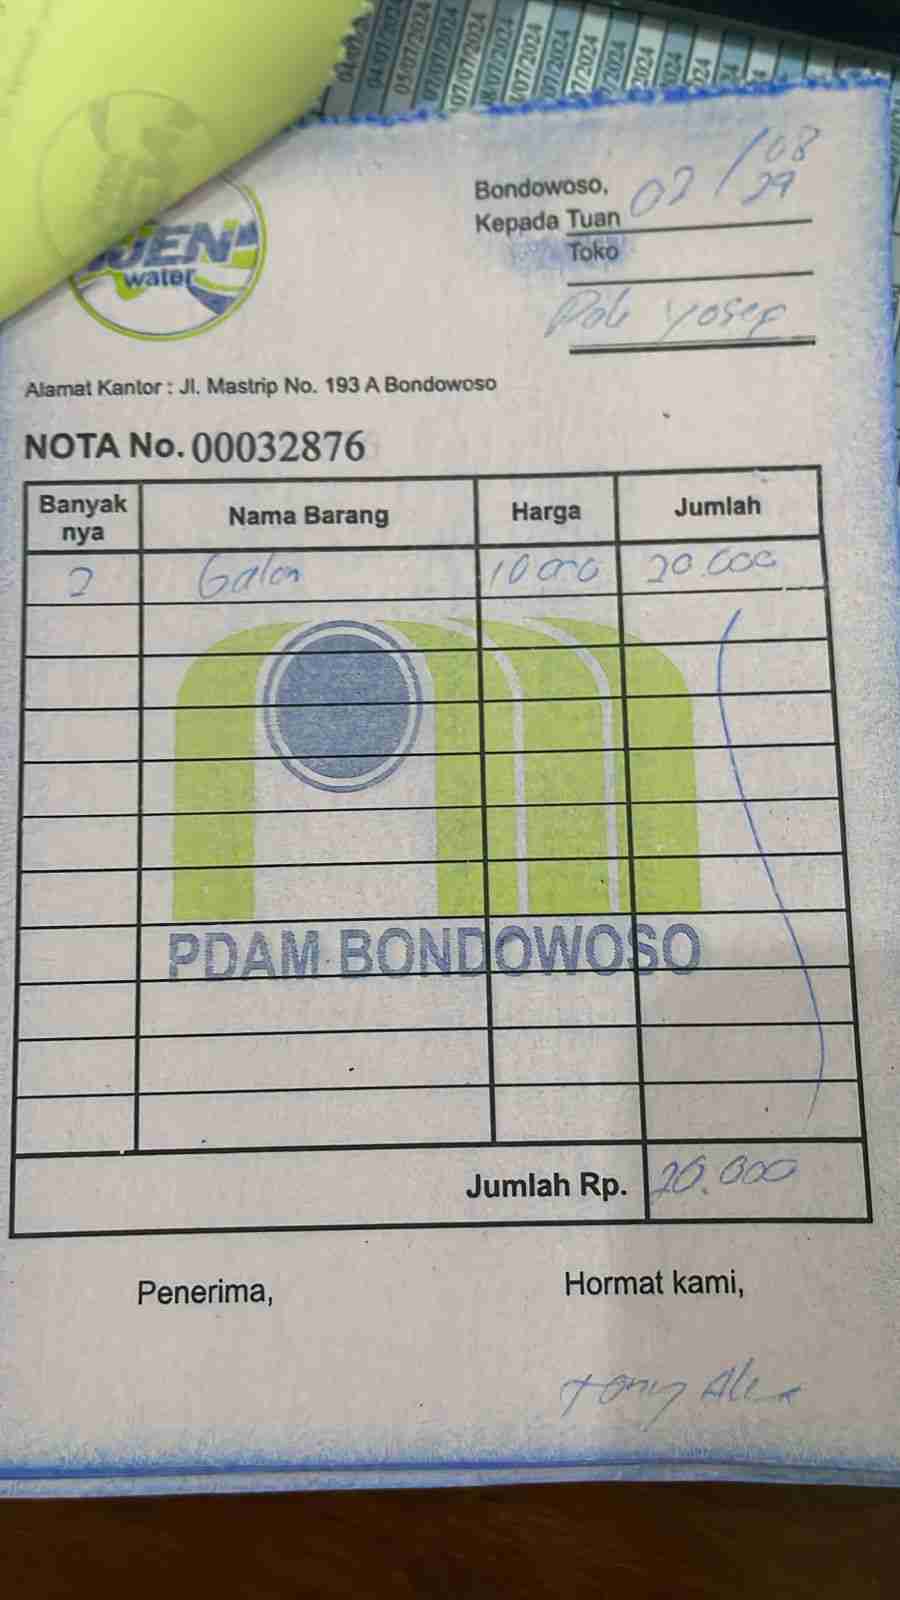 04/07/2024
05/07/2024
07/07/2024
07/07/2024
/07/2024
/07/2024
/2024
2024
IJEN
water
Bondowoso, 02/08
Kepada Tuan
Toko
Pak Yosef
Alamat Kantor : Jl. Mastrip No. 193 A Bondowoso
NOTA No. 00032876
Banyak nya Nama Barang Harga Jumlah
2 Galon 10 000 20.000
PDAM BONDOWOSO
Jumlah Rp. 20.000
Penerima, Hormat kami,
Tony Alex